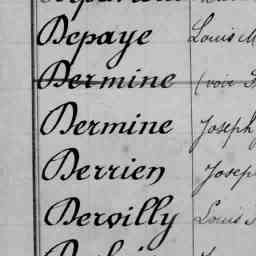 Depaye Louis M
Dermine (voir
Dermine Joseph
Derrien Josep
Dervilly Louis